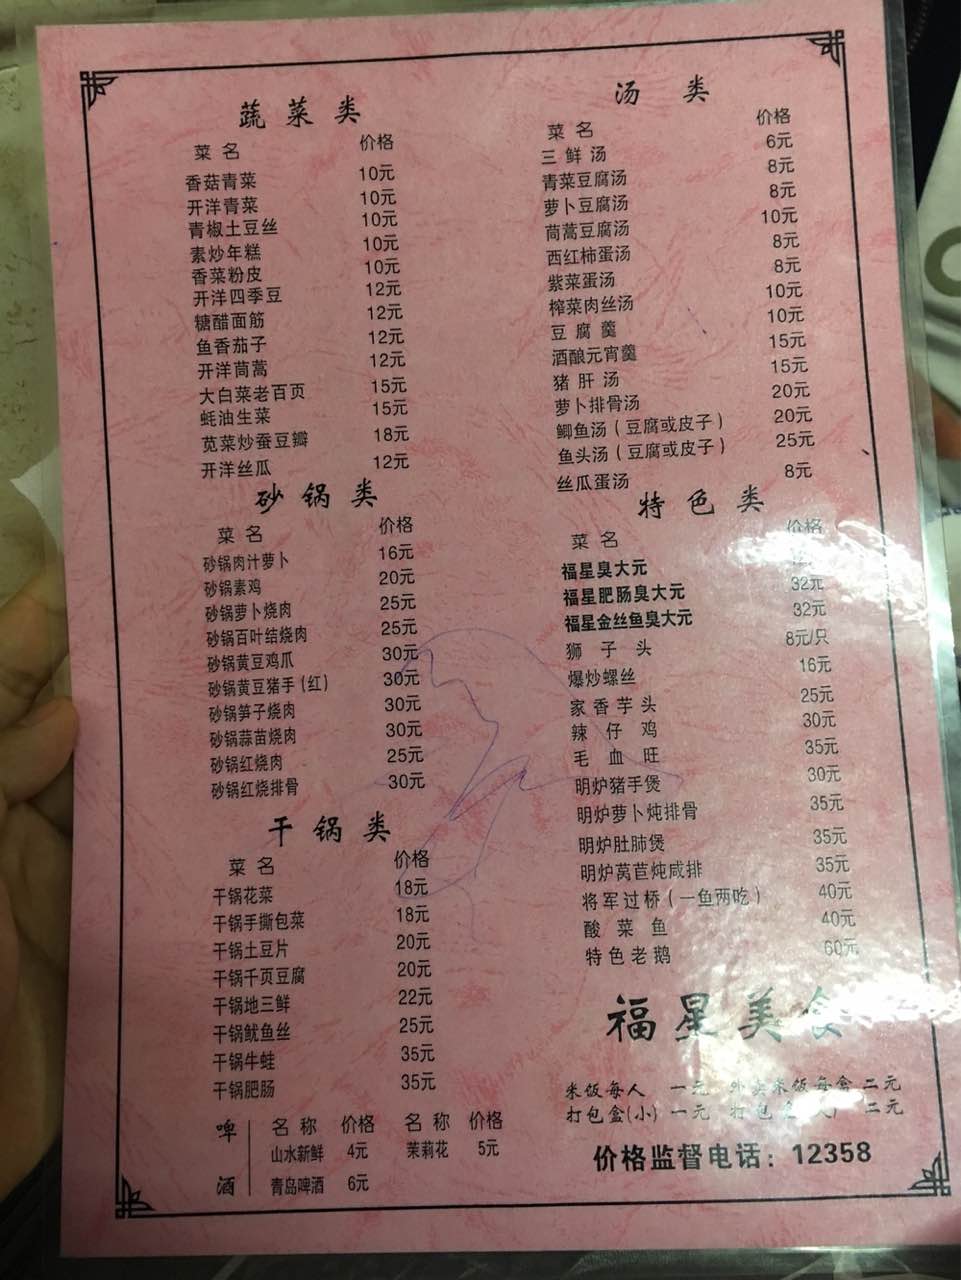 蔬菜类
菜名 价格
香菇青菜 10元
开洋青菜 10元
青椒土豆丝 10元
素炒年糕 10元
香菜粉皮 10元
开洋四季豆 12元
糖醋面筋 12元
鱼香茄子 12元
开洋茼蒿 12元
大白菜老百页 15元
蚝油生菜 15元
苋菜炒蚕豆瓣 18元
开洋丝瓜 12元
砂锅类
菜名 价格
砂锅肉汁萝卜 16元
砂锅素鸡 20元
砂锅萝卜烧肉 25元
砂锅百叶结烧肉 25元
砂锅黄豆鸡爪 30元
砂锅黄豆猪手(红) 30元
砂锅笋子烧肉 30元
砂锅蒜苗烧肉 30元
砂锅红烧肉 25元
砂锅红烧排骨 30元
干锅类
菜名 价格
干锅花菜 18元
干锅手撕包菜 18元
干锅土豆片 20元
干锅千页豆腐 20元
干锅地三鲜 22元
干锅鱿鱼丝 25元
干锅牛蛙 35元
干锅肥肠 35元
啤酒
名称 价格 名称 价格
山水新鲜 4元 茉莉花 5元
青岛啤酒 6元
汤类
菜名 价格
三鲜汤 6元
青菜豆腐汤 8元
萝卜豆腐汤 8元
茼蒿豆腐汤 10元
西红柿蛋汤 8元
紫菜蛋汤 8元
榨菜肉丝汤 10元
豆腐羹 10元
酒酿元宵羹 15元
猪肝汤 15元
萝卜排骨汤 20元
鲫鱼汤(豆腐或皮子) 20元
鱼头汤(豆腐或皮子) 25元
丝瓜蛋汤 8元
特色类
菜名 价格
福星臭大元
福星肥肠臭大元 32元
福星金丝鱼臭大元 32元
狮子头 8元/只
爆炒螺丝 16元
家香芋头 25元
辣仔鸡 30元
毛血旺 35元
明炉猪手煲 30元
明炉萝卜炖排骨 35元
明炉肚肺煲 35元
明炉莴苣炖咸排 35元
将军过桥(一鱼两吃) 40元
酸菜鱼 40元
特色老鹅 60元
福星美食
米饭每人 一元 外卖米饭每盒 二元
打包盒(小) 一元 打包盒(大) 二元
价格监督电话：12358